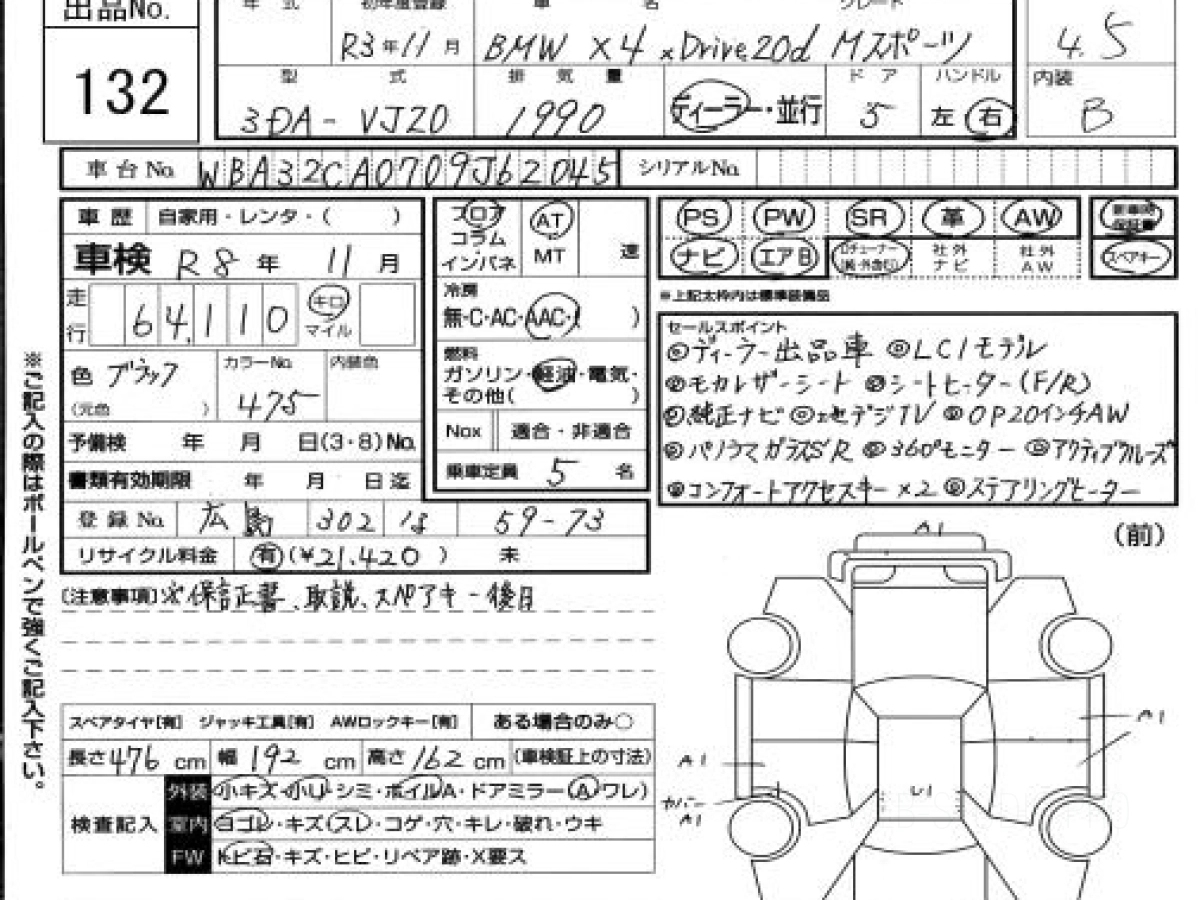 出品No. 年式 初年度登録 車名 グレード
132
R3年11月 BMW X4 xDrive20d Mスポーツ 4.5
型式 排気量 ドア ハンドル 内装
3DA-VJ20 1990 ディーラー・並行 5 左 右 B
車台No. WBA32CA0709J62045 シリアルNo.
車歴 自家用・レンタ・( )
車検 R8年 11月
走行 64,110 キロ マイル
色 ブラック (元色 ) カラーNo. 475 内装色
予備検 年 月 日(3・8)No.
書類有効期限 年 月 日迄
登録No. 広島 302 は 59-73
リサイクル料金 有(¥21,420 ) 未
フロア コラム インパネ AT MT 速
冷房
無・C・AC・AAC・( )
燃料
ガソリン・軽油・電気・
その他( )
Nox 適合・非適合
乗車定員 5 名
PS PW SR 革 AW 新車時保証書
ナビ エアB 社外ナビ 社外AW スペアキー
※上記太枠内は標準装備品
セールスポイント
◎ディーラー出品車 ◎LCIモデル
◎モカレザーシート ◎シートヒーター(F/R)
◎純正ナビ ◎地デジTV ◎OP20インチAW
◎パノラマガラスSR ◎360°モニター ◎アクティブクルーズ
◎コンフォートアクセスキー×2 ◎ステアリングヒーター
(注意事項)※保証書、取説、スペアキー後日
※ご記入の際はボールペンで強くご記入下さい。
スペアタイヤ[有] ジャッキ工具[有] AWロックキー[有] ある場合のみ○
長さ476cm 幅192cm 高さ162cm (車検証上の寸法)
検査記入
外装 小キズ・小U・シミ・ホイルA・ドアミラー(A・ワレ)
室内 ヨゴレ・キズ・スレ・コゲ・穴・キレ・破れ・ウキ
FW トビ石・キズ・ヒビ・リペア跡・X要ス
(前)
A1
A1
A1
カバー
A1
U1